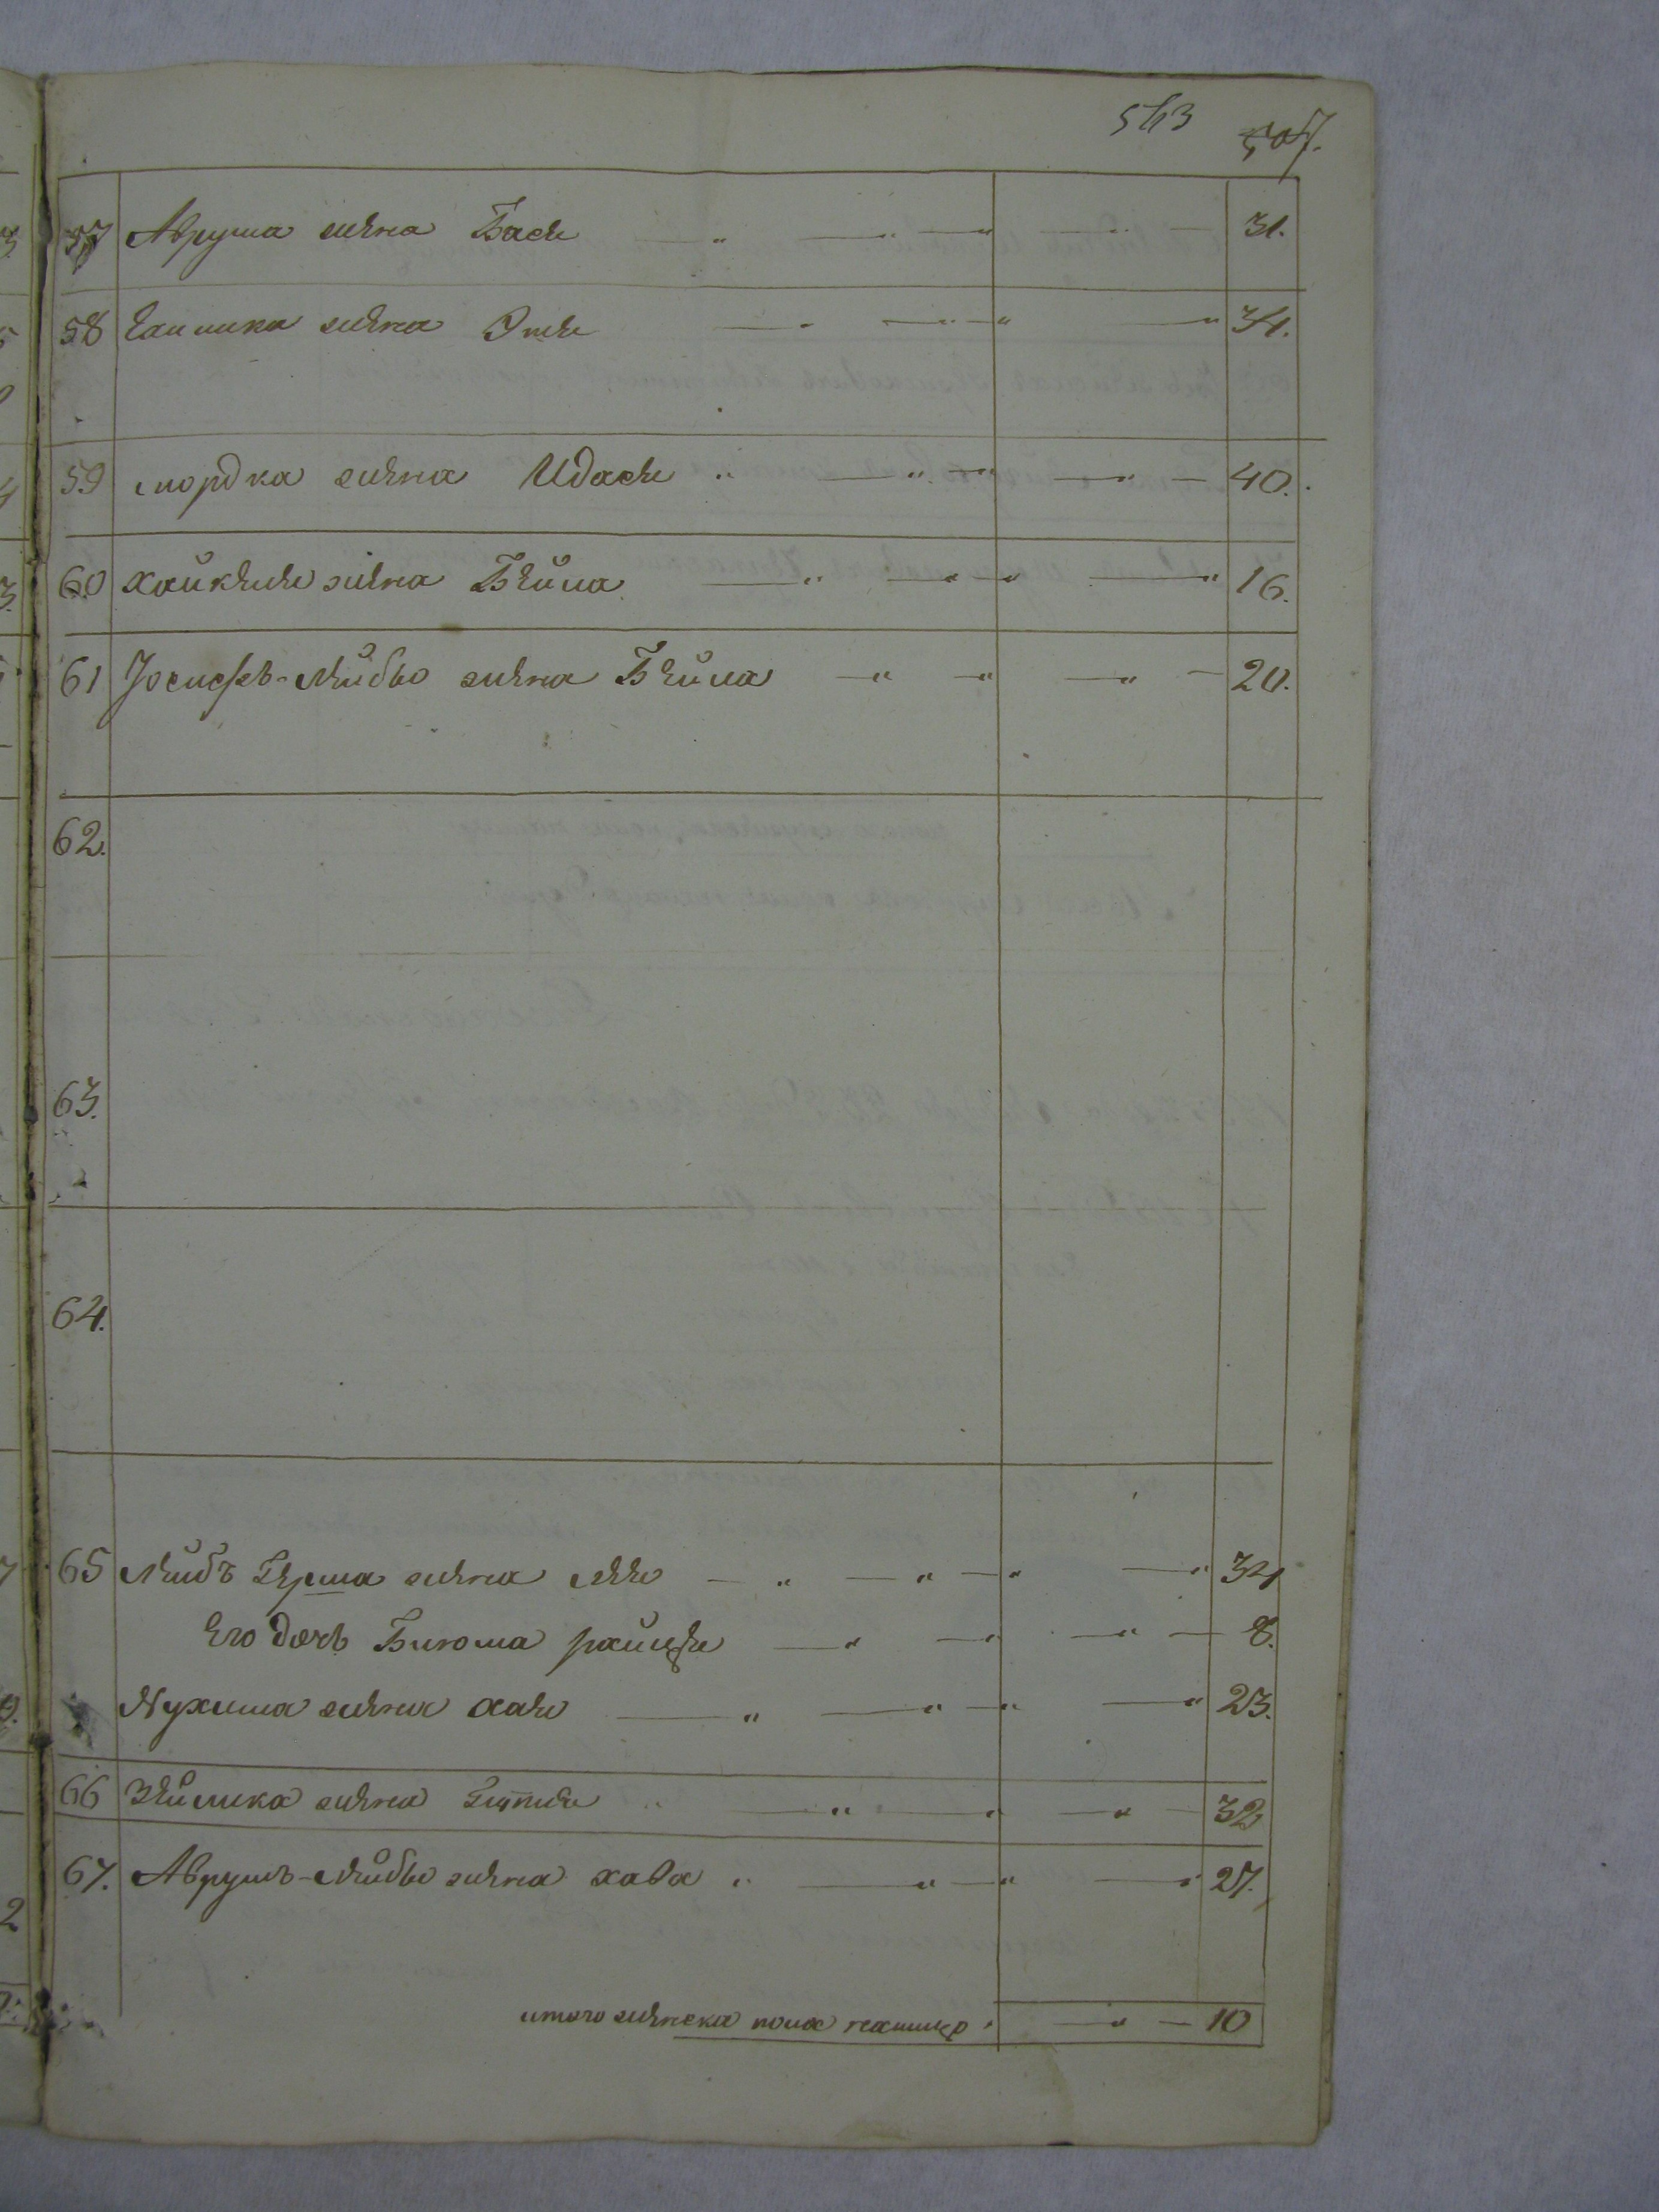 543 507.
57 Авруша жена Бася 31.
58 жена Этя 34.
59 Мордка жена Идася 40.
60 Хайкеля жена Бейла 16.
61 Іосифъ-Лейбы жена Бейла 20.
62.
63.
64.
65 Лейбъ Герша жена Лея 34
Его дочь Райця 8.
Нухима жена Хая 23.
66 Зейлика жена 32
67. Аврумъ-Лейбы жена Хава 27.
итого женска пола налицо 10